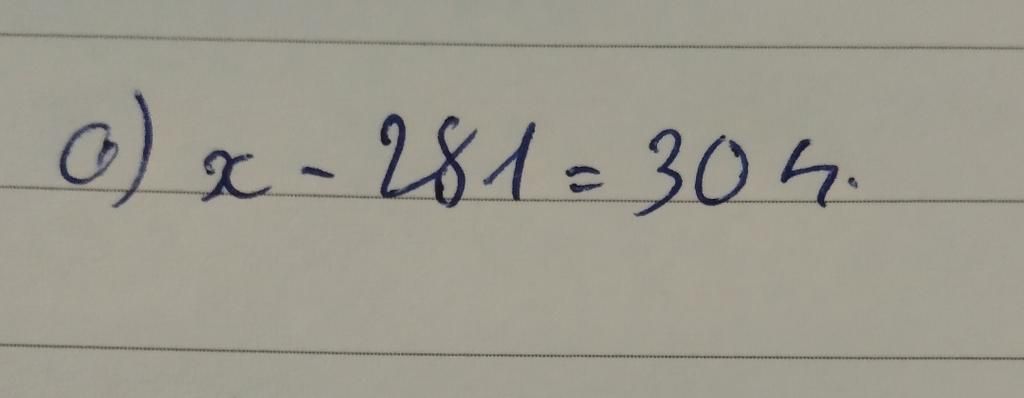 a) x - 281 = 304.